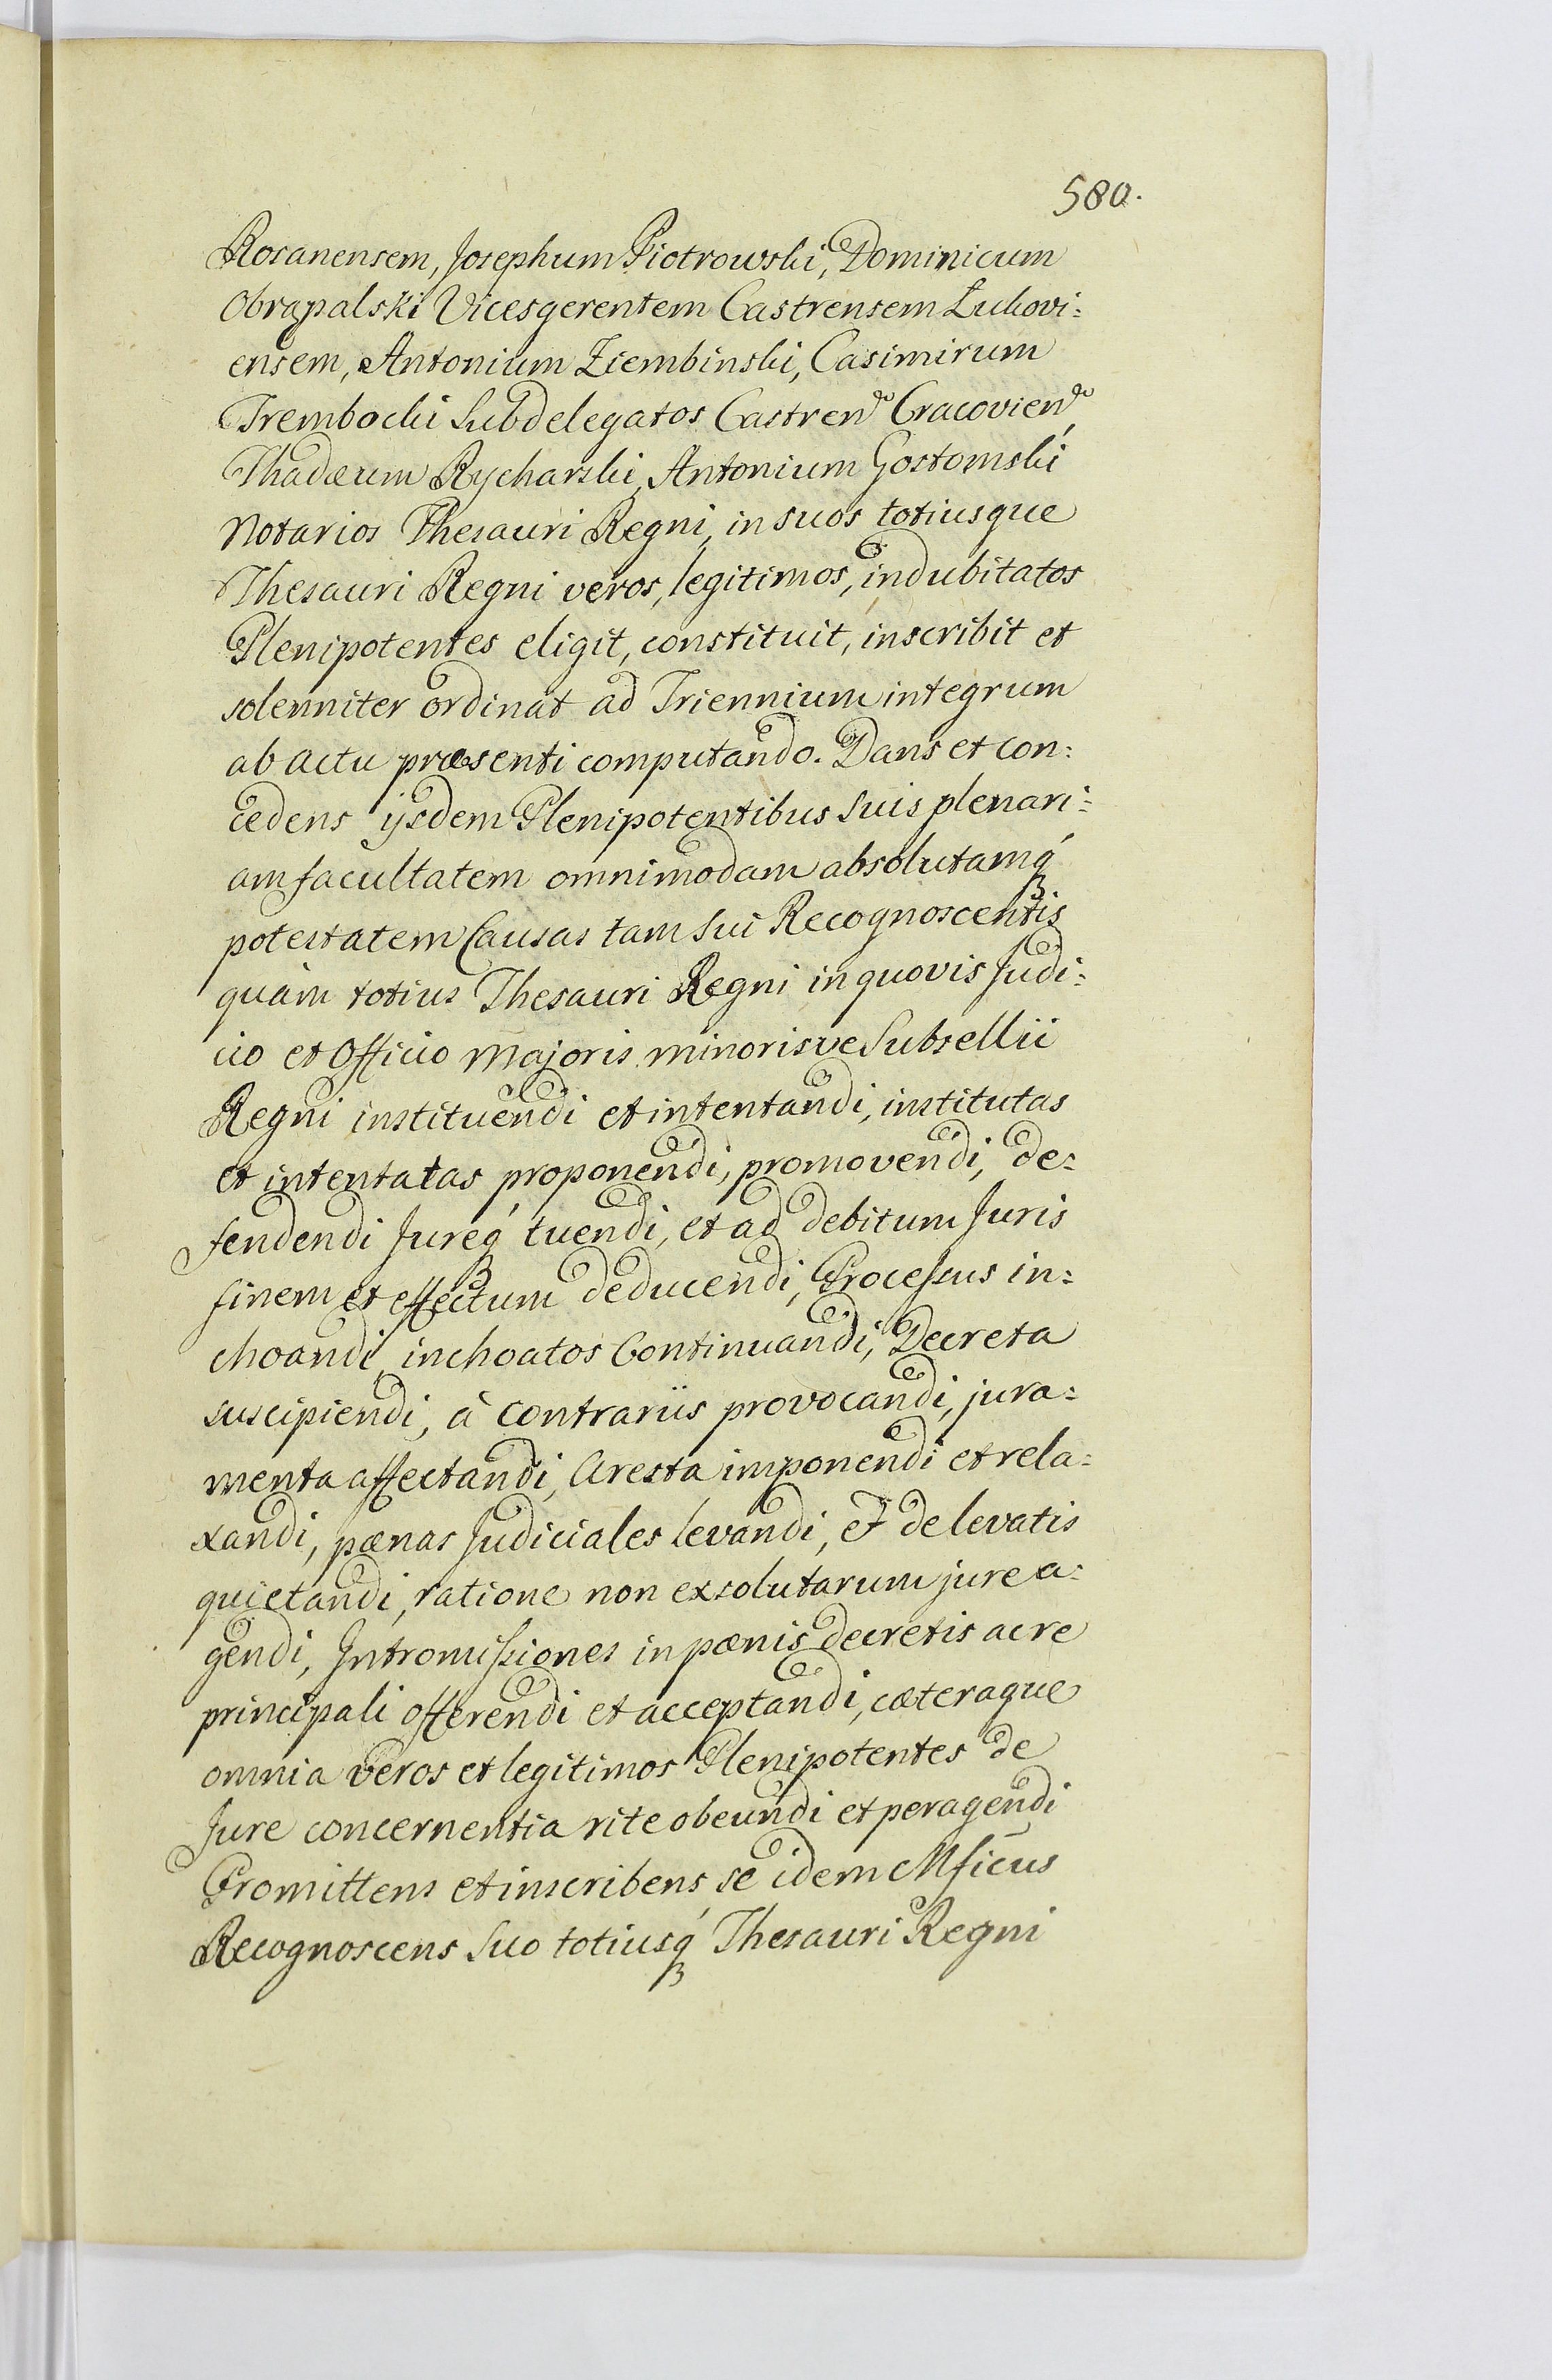 580.
Rosanensem, Josephum Piotrowski, Dominicum
Obrąpalski Vicesgerentem Castrensem Łukovi:
ensem, Antonium Ziembinski, Casimirum
Trembecki Subdelegatos Castren Cracovien,
Thadæum Rycharski, Antonium Gostomski
Notarios Thesauri Regni, in suos totiusque
Thesauri Regni veros, legitimos, indubitatos
Plenipotentes eligit, constituit, inscribit et
solenniter ordinat ad Triennium integrum
ab actu præsenti computando. Dans et con:
cedens ijsdem Plenipotentibus suis plenari:
am facultatem omnimodam absolutamq́
potestatem Causas tam sui Recognoscentis
quàm totius Thesauri Regni in quovis Judi:
cio et Officio Majoris minorisve Subsellii
Regni instituendi et intentandi, institutas
et intentatas proponendi, promovendi, de:
fendendi Jureq́ tuendi, et ad debitum Juris
finem et effectum deducendi, Processus in:
choandi, inchoatos Continuandi, Decreta
suscipiendi, à contrariis provocandi, jura:
menta affectandi, Aresta imponendi et rela:
xandi, pænas Judiciales levandi, et de levatis
quietandi, ratione non exsolutarum jure a:
gendi, Intromissiones in pænis decretis ac re
principali offerendi et acceptandi, cæteraque
omnia veros et legitimos Plenipotentes de
Jure concernentia rite obeundi et peragendi
Promittens et inscribens se idem Mficus
Recognoscens suo totiusq́ Thesauri Regni